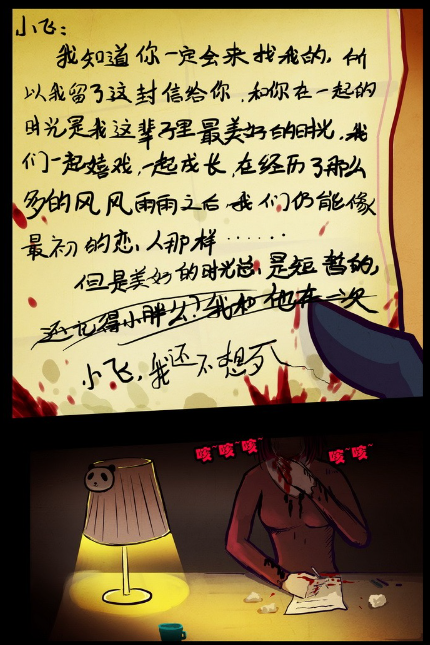 小飞:
我知道你一定会来找我的, 所
以我留了这封信给你, 和你在一起的
时光是我这辈子里最美好的时光, 我
们一起嬉戏, 一起成长, 在经历了那么
多的风风雨雨之后 我们仍能像
最初的恋人那样······
但是美好的时光总是短暂的,
还记得小胖么? 我和他在一次
小飞, 我还不想死
咳~咳~咳~
咳~咳~